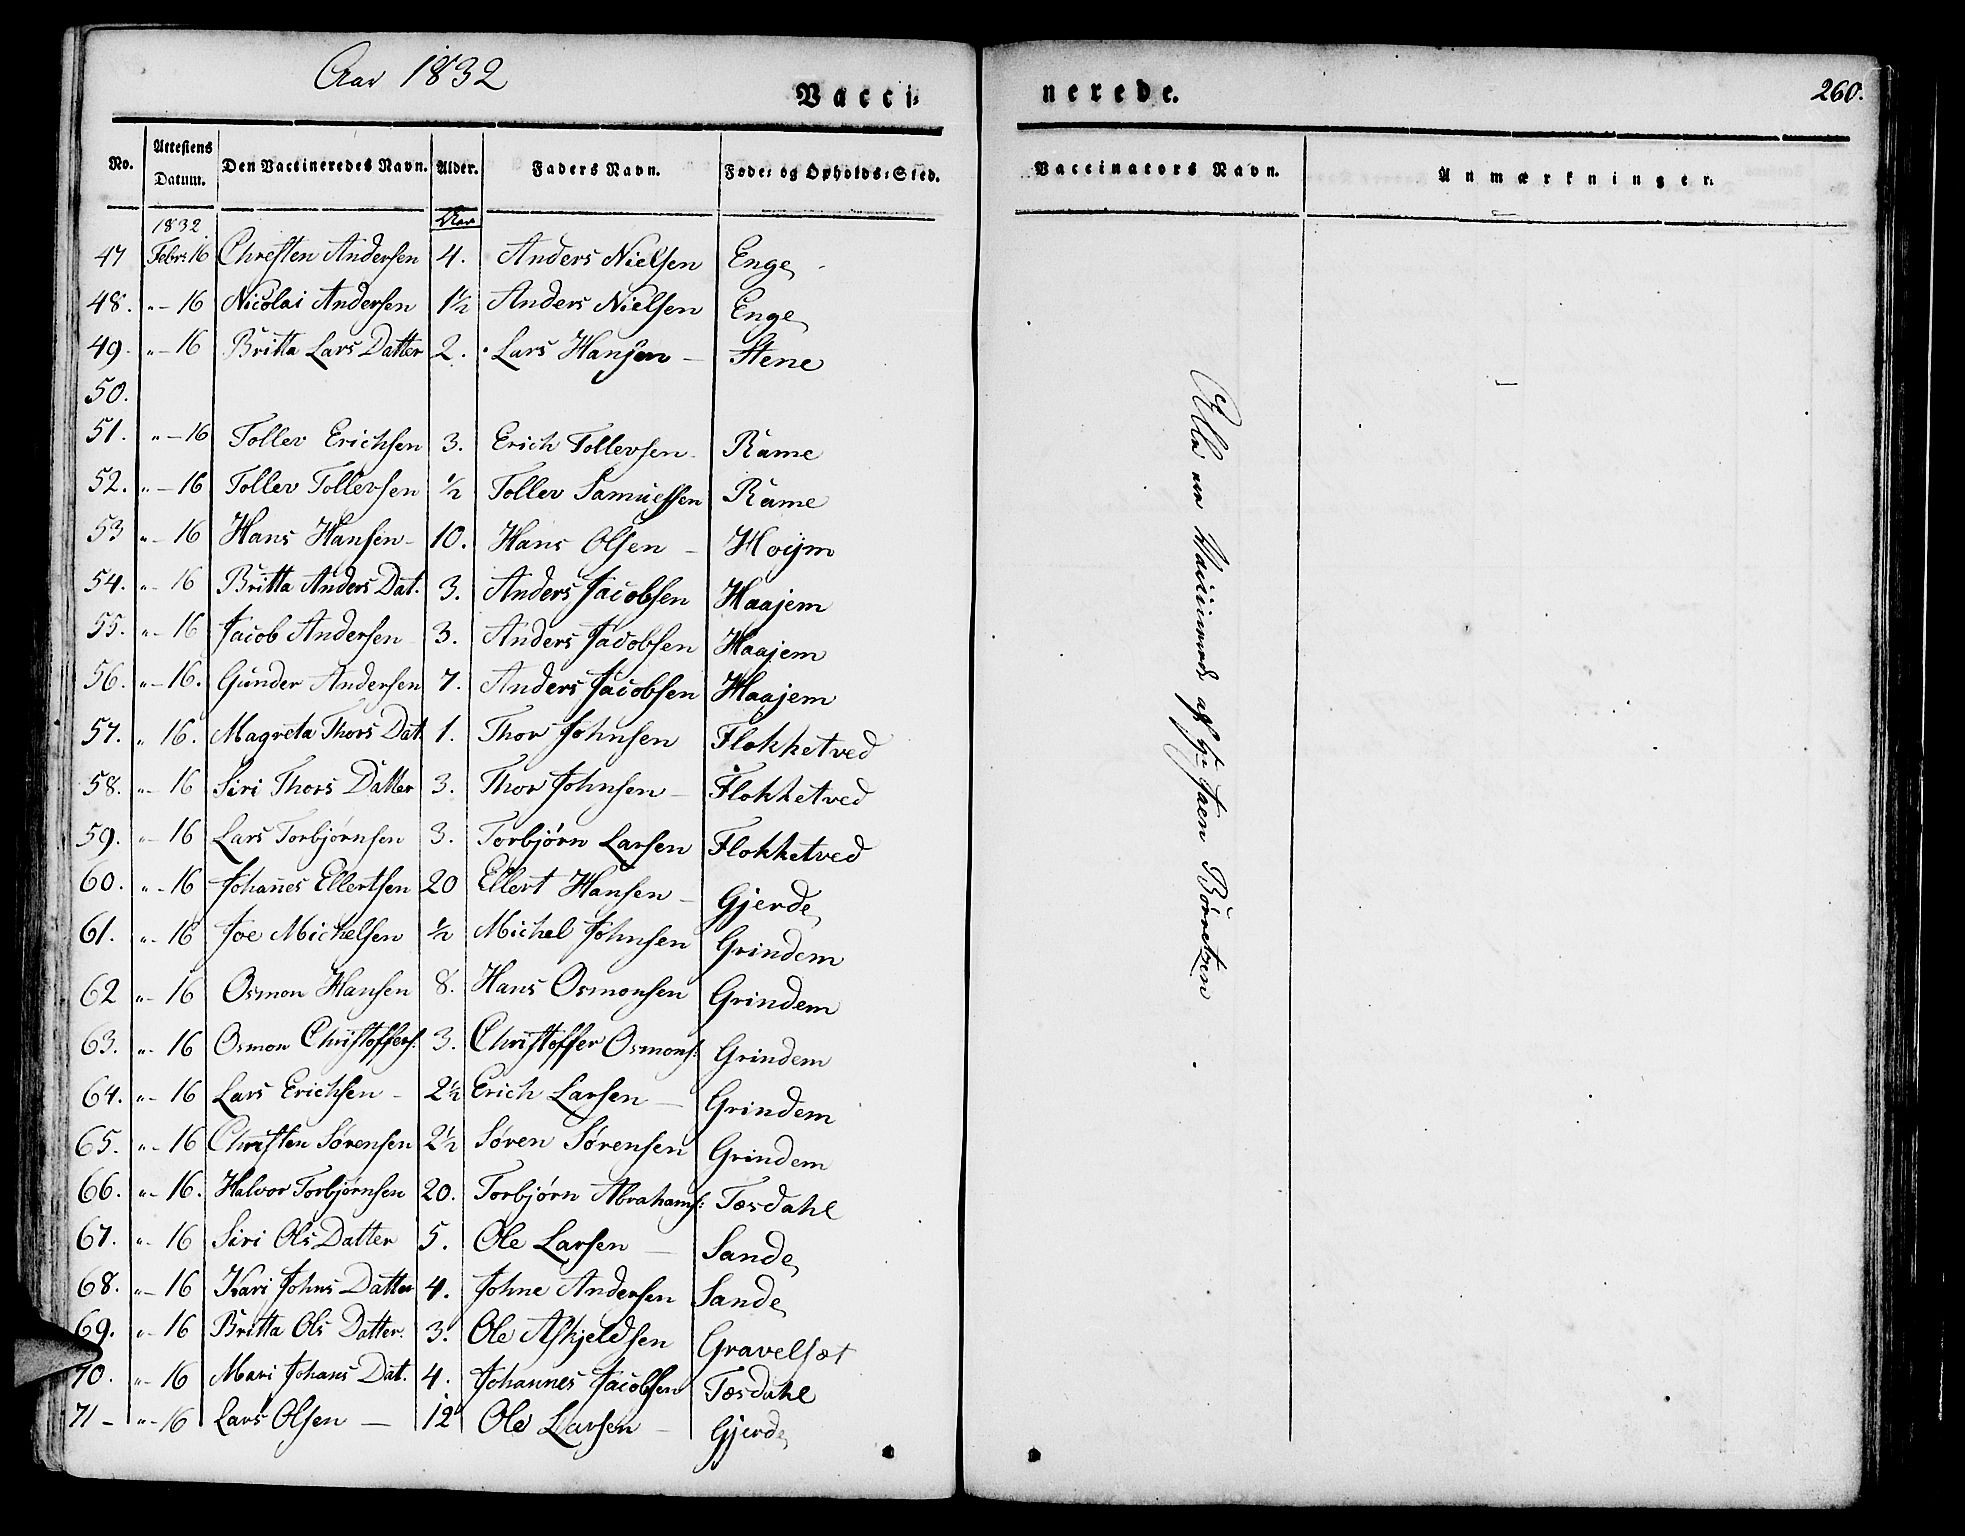 Aar 1832
Vacci-
nerede.
260.
No. | Attestens Datum. | Den Vaccineredes Navn. | Alder. | Faders Navn. | Føde- og Opholds-Sted. | Vaccinators Navn. | Anmærkninger.
1832 | Aar
47 Febr: 16 Chresten Andersen 4. Anders Nielsen Enge
48. "-16 Nicolai Andersen 1½ Anders Nielsen Enge
49. "-16 Britta Lars Datter 2. Lars Hansen - Stene
50.
51. "-16 Tollev Erichsen 3. Erich Tollevsen Rame
52. "-16 Tollev Tollevsen ½ Tollev Samuelsen Rame
53 "-16 Hans Hansen - 10. Hans Olsen - Hoijm
54. "-16 Britta Anders Dat. 3. Anders Jacobsen Haajem
55. "-16 Jacob Andersen 3. Anders Jacobsen Haajem
56. "-16. Gunder Andersen 7. Anders Jacobsen Haajem
57. " 16. Magreta Thors Dat. 1. Thor Johnsen Flokketved
58. "-16 Siri Thors Datter 3. Thor Johnsen - Flokketved
59. "-16 Lars Torbjørnsen 3. Torbjørn Larsen Flokketved
60. "-16 Johannes Ellertsen 20 Ellert Hansen - Gjerde
61. "-16 Joe Michelsen ½ Michel Johnsen Grindem
62 "-16 Osmon Hansen 8. Hans Osmonsen Grindem
63. "-16 Osmon Christoffers: 3. Christoffer Osmons: Grindem
64. "-16 Lars Erichsen - 2½ Erich Larsen - Grindem
65. "-16 Christen Sørensen 2½ Søren Sørensen Grindem
66. "-16. Halvor Torbjørnsen 20. Torbjørn Abrahams: Tæsdahl
67. "-16 Siri Ols Datter 5. Ole Larsen - Sande
68. "-16 Kari Johns Datter 4. Johne Andersen Sande
69. "-16 Britta Ols Datter. 3. Ole Askjeldsen Gravelsæt
70. "-16 Mari Johans Dat. 4. Johannes Jacobsen Tæsdahl
71- "-16 Lars Olsen - 12 Ole Larsen - Gjerde
Alle ere Vaccinerede af Jaen Børretzen